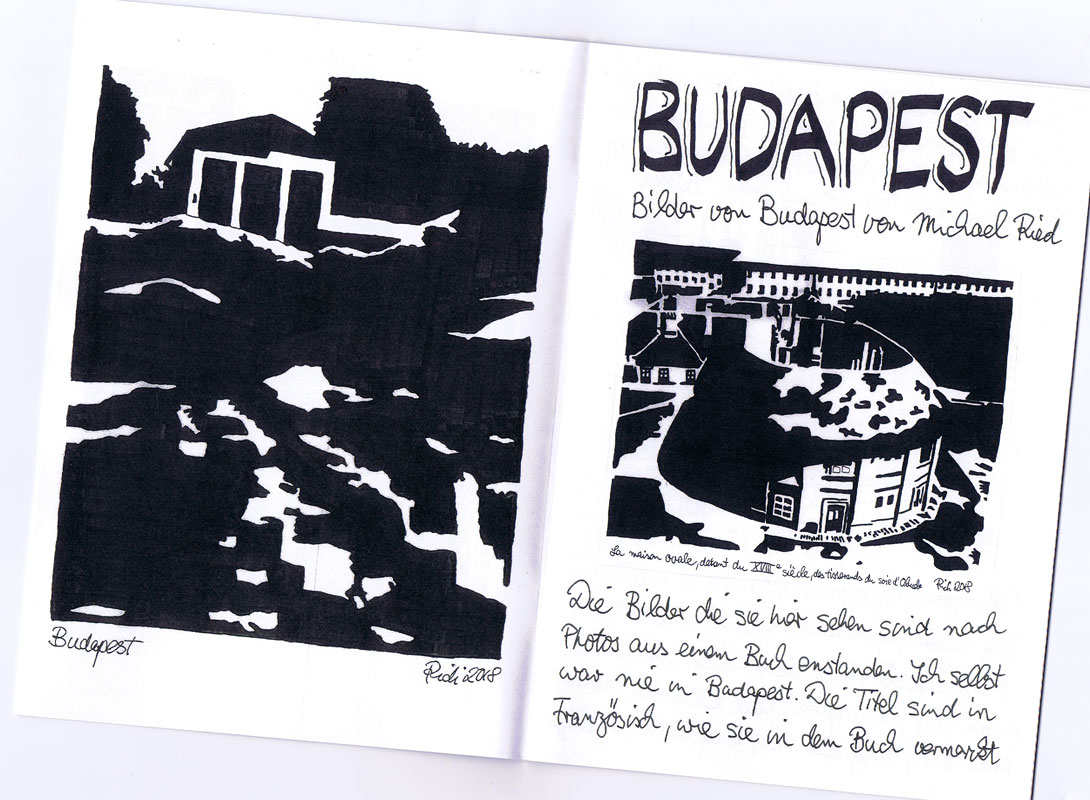 Budapest
Richi 2018
BUDAPEST
Bilder von Budapest von Michael Ried
La maison ovale, datant du XVIIIe siècle, des tisserands du soie d'Obuda
Richi 2018
Die Bilder die sie hier sehen sind nach
Photos aus einem Buch enstanden. Ich selbst
war nie in Budapest. Die Titel sind in
Französisch, wie sie in dem Buch vermerkt